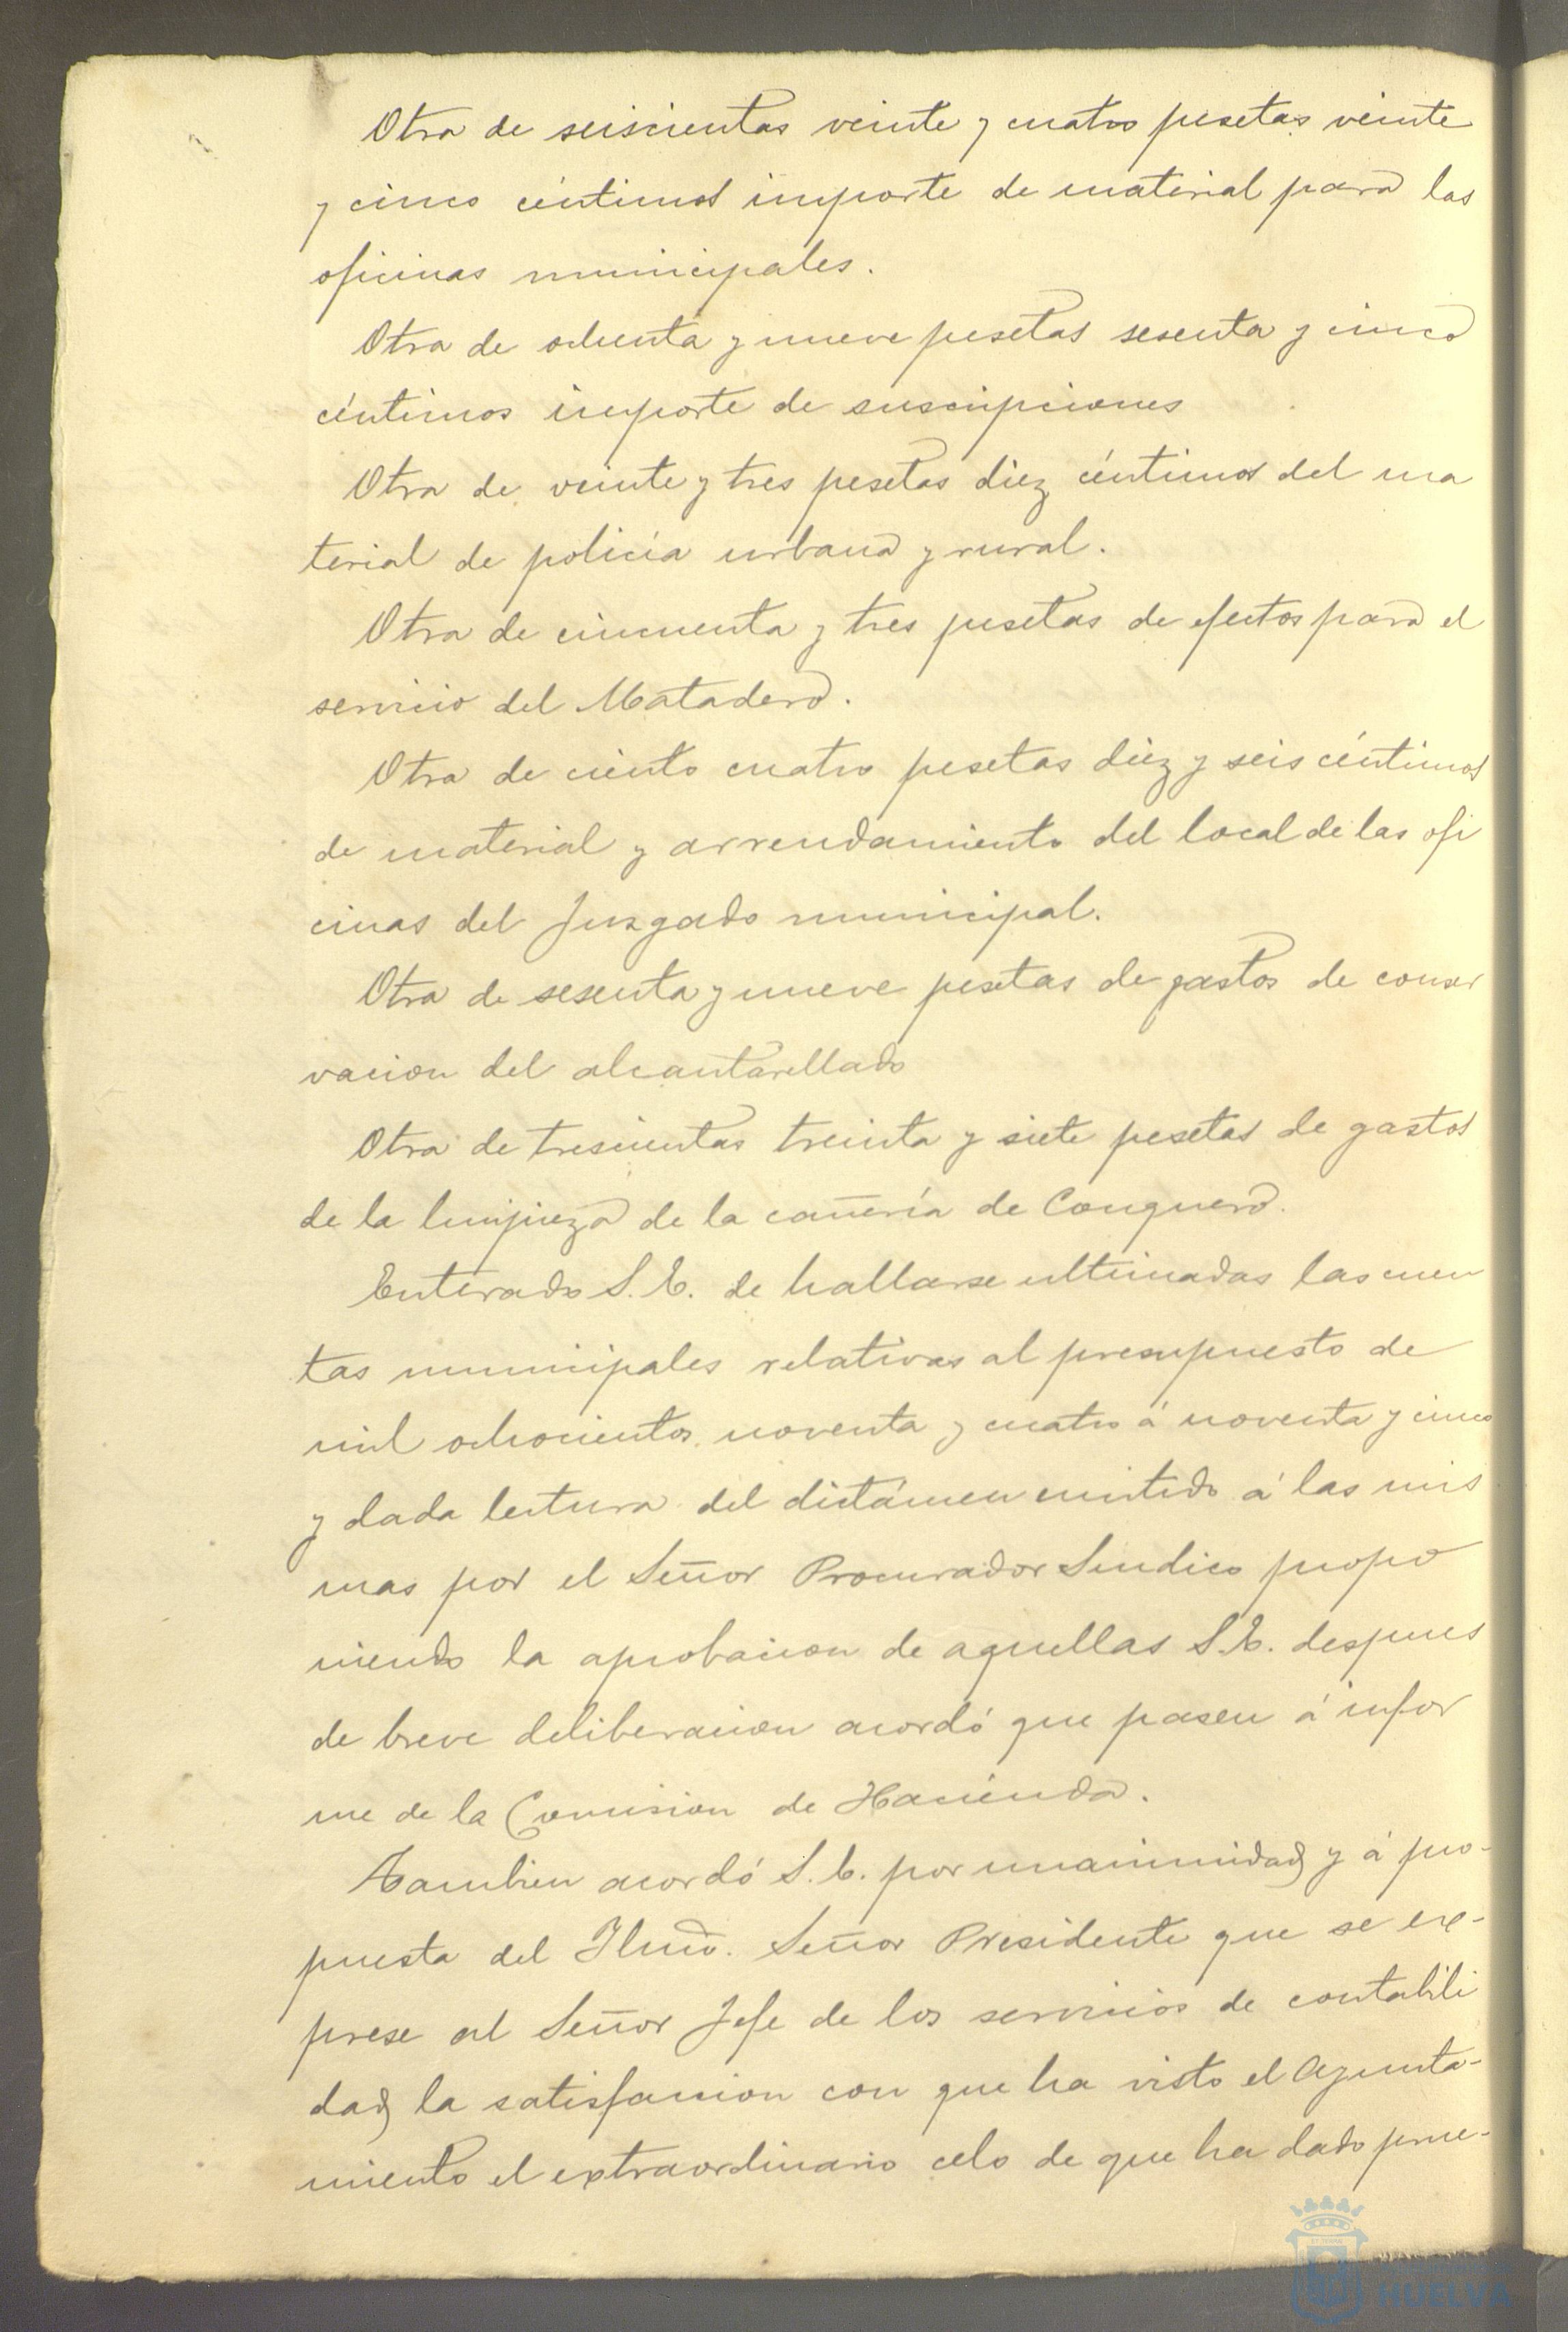 Otra de seiscientas veinte y cuatro pesetas veinte
y cinco céntimos importe de material para las
oficinas municipales.
Otra de ochenta y nueve pesetas sesenta y cinco
céntimos importe de suscripciones
Otra de veinte y tres pesetas diez céntimos del ma
terial de policía urbana y rural.
Otra de cincuenta y tres pesetas de efectos para el
servicio del Matadero.
Otra de ciento cuatro pesetas diez y seis céntimos
de material y arrendamiento del local de las ofi
cinas del Juzgado municipal.
Otra de sesenta y nueve pesetas de gastos de conser
vacion del alcantarellado
Otra de trescientas treinta y siete pesetas de gastos
de la limpieza de la cañería de Conquero.
Enterado S. E. de hallarse ultimadas las cuen
tas municipales relativas al presupuesto de
mil ochocientos noventa y cuatro á noventa y cinco
y dada lectura del dictámen emitido á las mis
mas por el Señor Procurador Sindico propo
niendo la aprobacion de aquellas S. E. despues
de breve deliberacion acordó que pasen á infor
me de la Comision de Hacienda.
Tambien acordó S. E. por unanimidad y á pro-
puesta del Ilmo. Señor Presidente que se ex-
prese al Señor Jefe de los servicios de contabili
dad la satisfaccion con que ha visto el Ayunta-
miento el extraordinario celo de que ha dado prue-
HUELVA